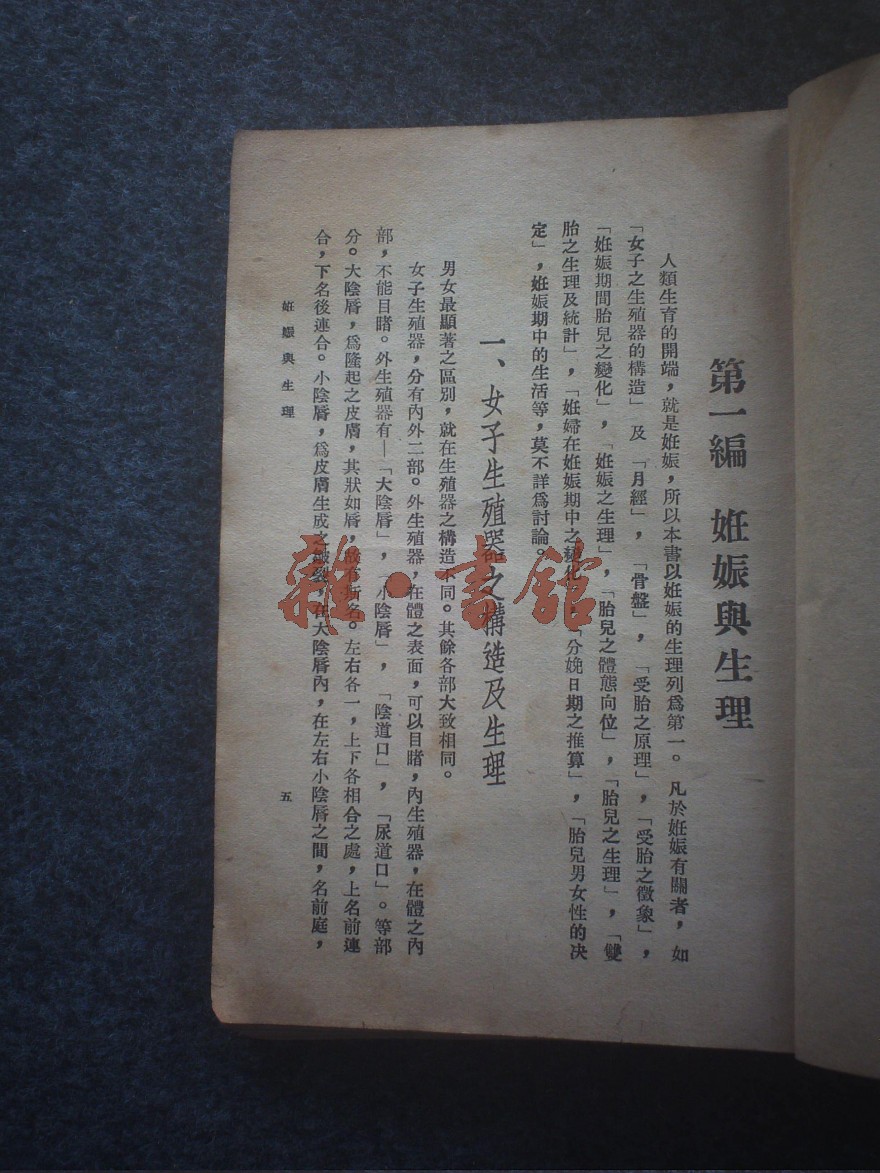 第一編　姙娠與生理
人類生育的開端，就是姙娠，所以本書以姙娠的生理列爲第一。凡於姙娠有關者，如
「女子之生殖器的構造」及「月經」，「骨盤」，「受胎之原理」，「受胎之徵象」，
「姙娠期間胎兒之變化」，「姙娠之生理」，「胎兒之體態向位」，「胎兒之生理」，「雙
胎之生理及統計」，「姙婦在姙娠期中之變化」，「分娩日期之推算」，「胎兒男女性的决
定」，姙娠期中的生活等，莫不詳爲討論。
一、女子生殖器之構造及生理
男女最顯著之區別，就在生殖器之構造不同。其餘各部大致相同。
女子生殖器，分有內外二部。外生殖器，在體之表面，可以目睹，內生殖器，在體之內
部，不能目睹。外生殖器有—「大陰唇」，「小陰唇」，「陰道口」，「尿道口」。等部
分。大陰唇，爲隆起之皮膚，其狀如唇，故有所名。左右各一，上下各相合之處，上名前連
合，下名後連合。小陰唇，爲皮膚生成之皺襞，在大陰唇內，在左右小陰唇之間，名前庭，
姙娠與生理
五
雜·書館